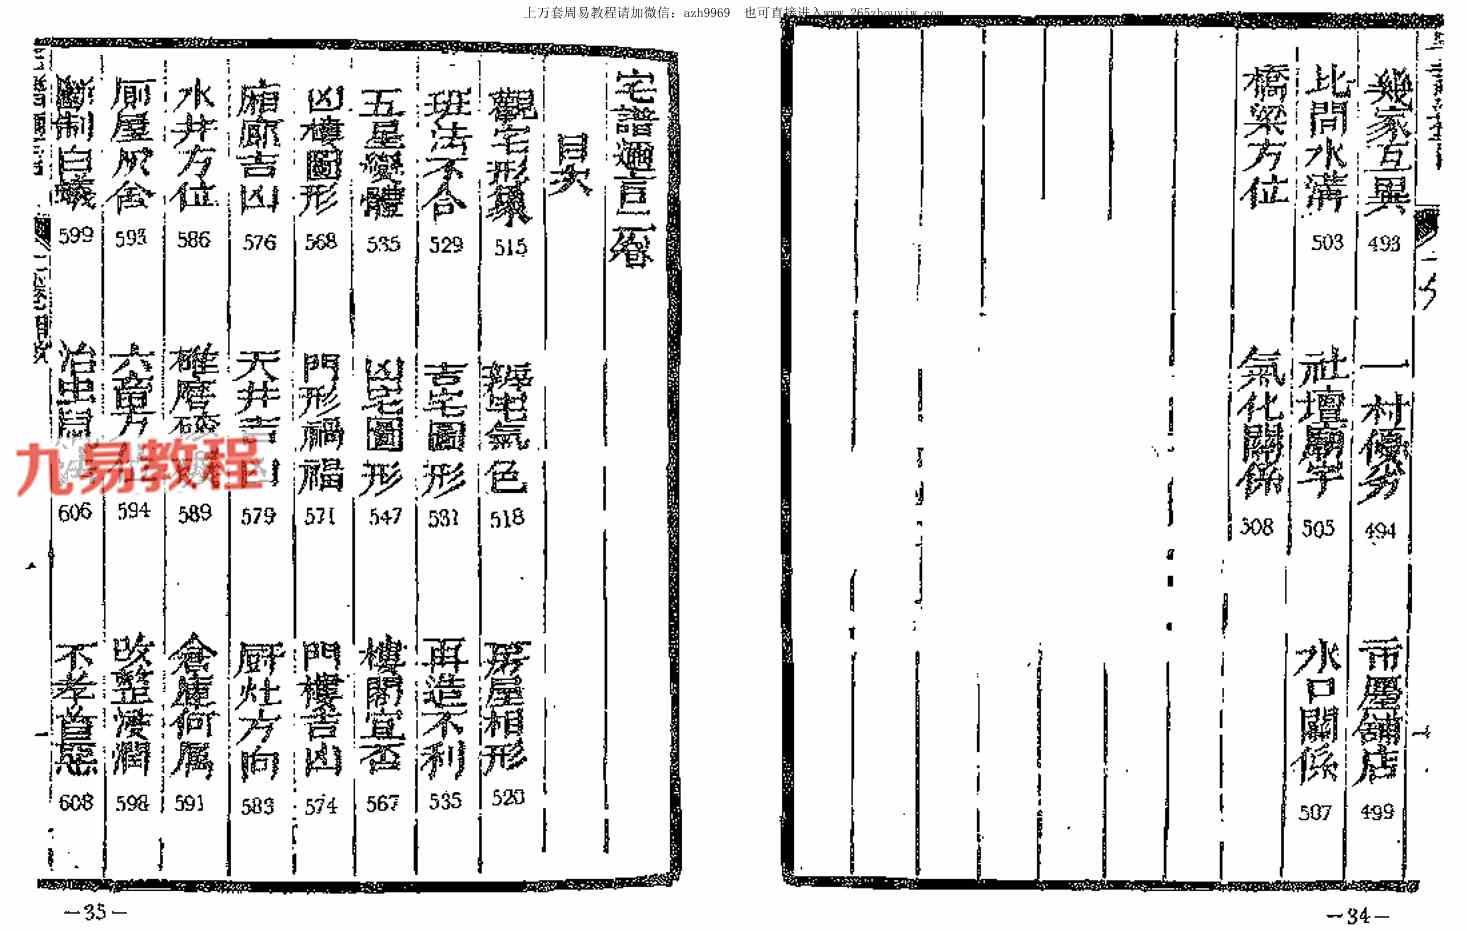 上万套周易教程请加微信：azh9969 也可直接进入www.265zhouyiw.com
幾家互異 493
一村優劣 494
市廛舖店 499
比間水溝 503
社壇廟宇 505
水口關係 507
橋梁方位
氣化關係 508
—34—
宅譜邇言二卷
目次
觀宅形象 515
辨宅氣色 518
房屋相形 520
班法不合 529
吉宅圖形 531
再造不利 535
五星變體 535
凶宅圖形 547
樓閣宜否 567
凶樓圖形 568
門形禍福 571
門樓吉凶 574
廂廊吉凶 576
天井吉凶 579
厨灶方向 583
水井方位 586
碓磨 589
倉庫何属 591
厠屋 593
六畜方位 594
改整浸潤 598
斷制白蟻 599
治虫 606
不孝首惡 608
—35—
九易教程